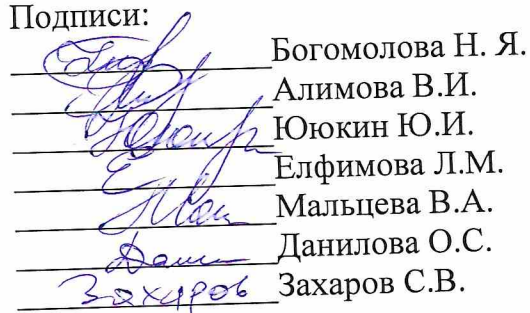 Подписи:
Богомолова Н. Я.
Алимова В.И.
Ююкин Ю.И.
Елфимова Л.М.
Мальцева В.А.
Данилова О.С.
Захаров Захаров С.В.